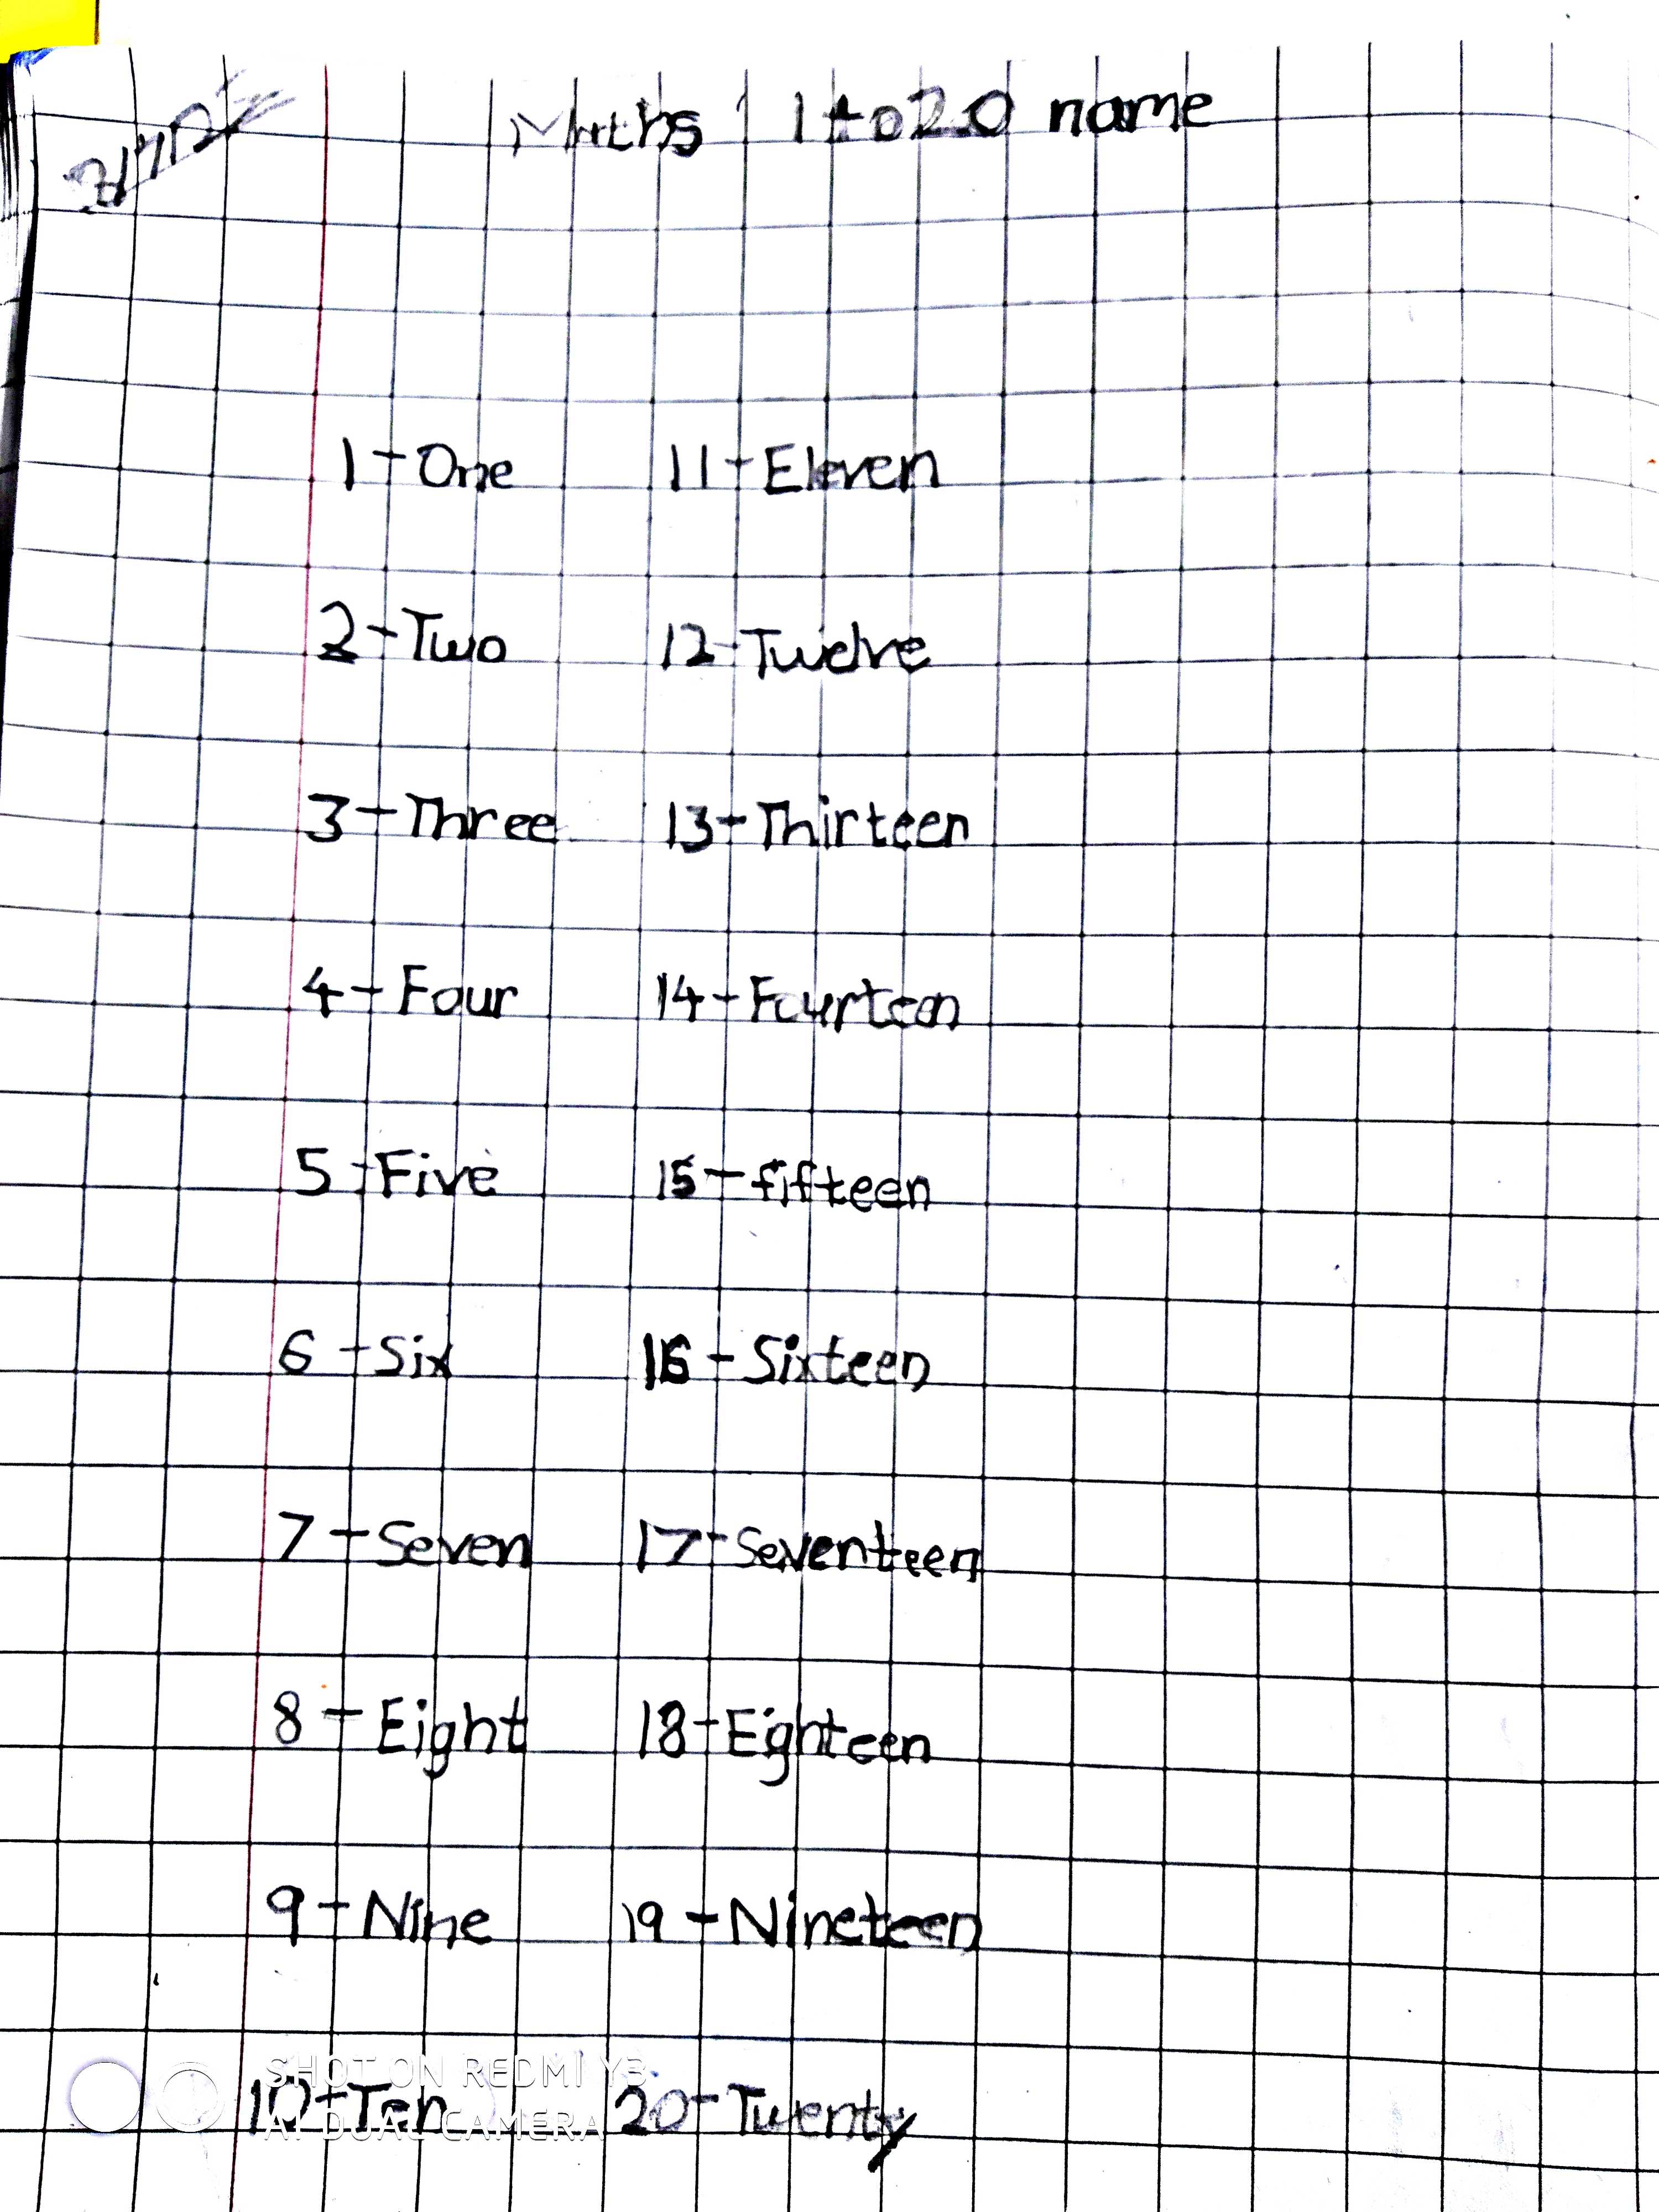 Maths 1 to 20 name
1 - One 11 - Eleven
2 - Two 12 - Twelve
3 - Three 13 - Thirteen
4 - Four 14 - Fourteen
5 - Five 15 - fifteen
6 - Six 16 - Sixteen
7 - Seven 17 - Seventeen
8 - Eight 18 - Eighteen
9 - Nine 19 - Nineteen
10 - Ten 20 - Twenty
SHOT ON REDMI Y3
AI DUAL CAMERA